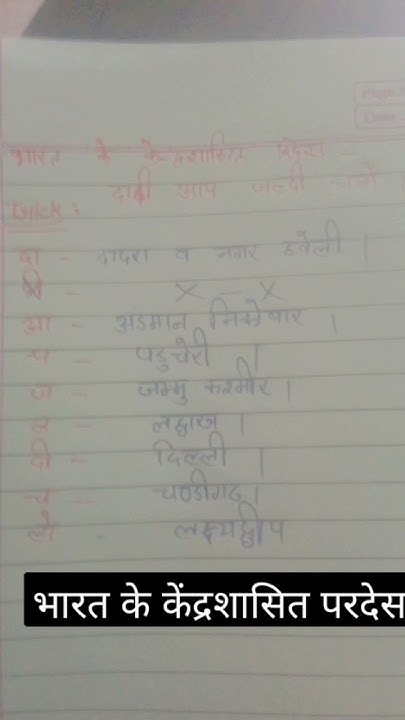 Page
Date
भारत के केन्द्रशासित प्रदेश
Trick : दादी आप जल्दी चलो
दा - दादरा व नगर हवेली ।
दी - X - X
आ - अडमान निकोबार ।
प - पडुचेरी ।
ज - जम्मु कश्मीर ।
ल - लद्दाख ।
दी - दिल्ली ।
च - चण्डीगढ ।
लो - लक्ष्यद्वीप
भारत के केंद्रशासित परदेस